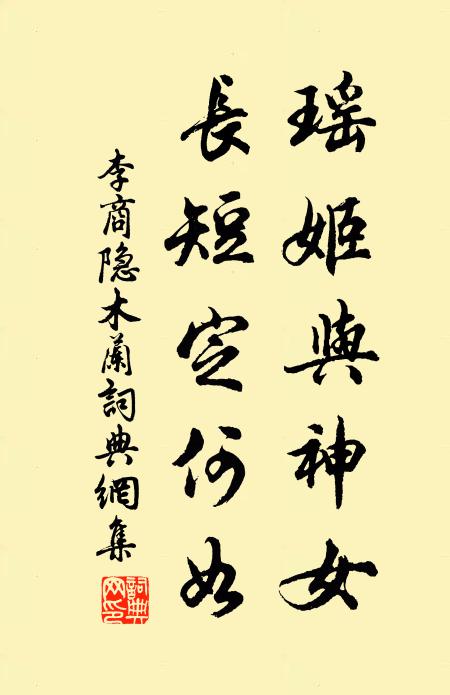 瑶姬與神女
長短定何如
李商隐木蘭詞典網集
詞典網印